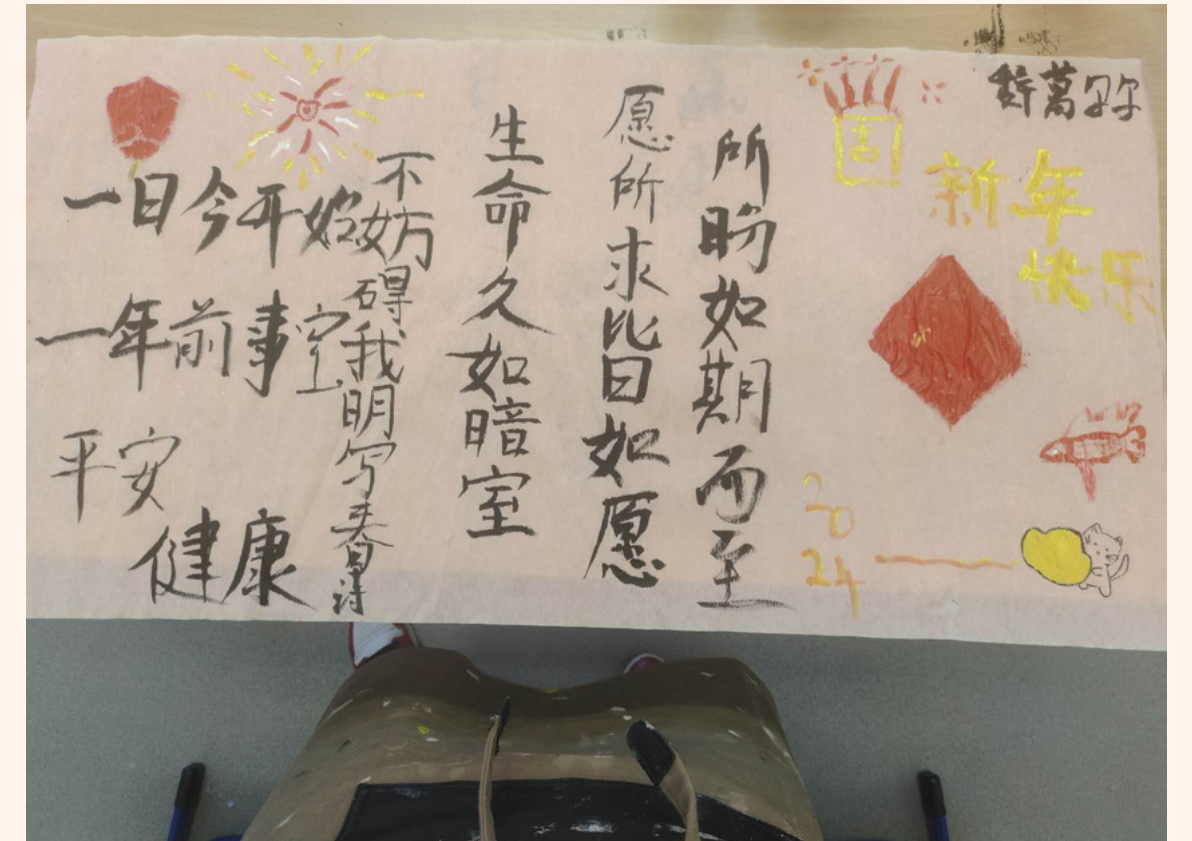 萬
新年
快乐
20
24
所盼如期而至
愿所求皆如愿
生命久如暗室
不妨碍我明写春诗
一日今开始
一年前事空
平安
健康